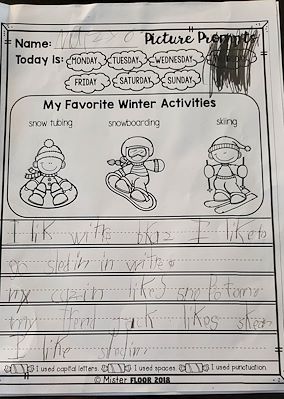 Name:
Picture Prompts
Today Is: MONDAY TUESDAY WEDNESDAY
FRIDAY SATURDAY SUNDAY
My Favorite Winter Activities
snow tubing snowboarding skiing
I lik I like to
go sledin in
my like
my frend jack likes
I like sledin
I used capital letters. I used spaces. I used punctuation.
© Mister FLOOR 2018